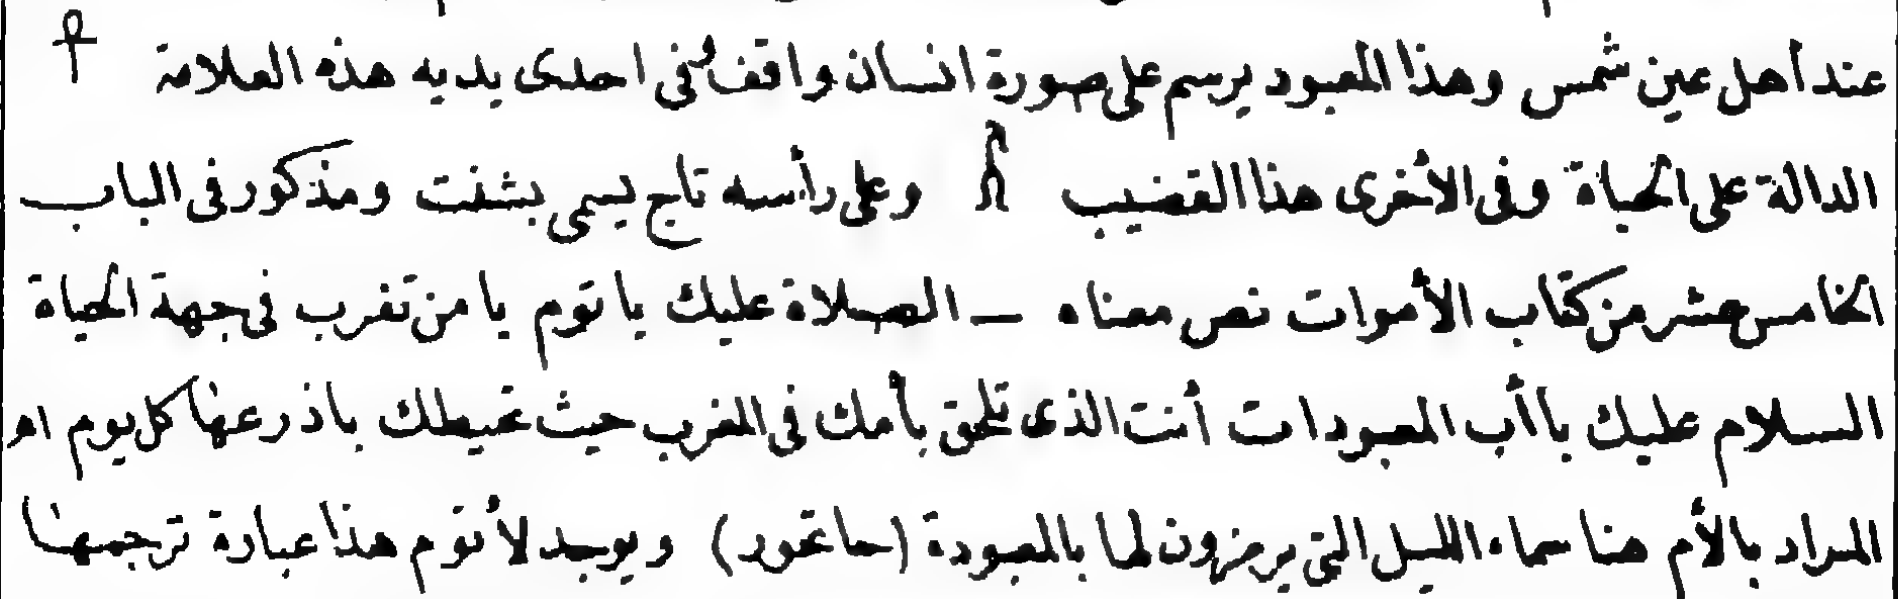 عند أهل عين شمس وهذا المعبود يرسم على صورة انسان واقف في احدى يديه هذه العلامة
الدالة على الحياة وفى الأخرى هذا القضيب وعلى رأسه تاج يسمى بشنت ومذكور فى الباب
الخامس عشر من كتاب الأموات نص معناه — الصلاة عليك يا توم يا من تغرب فى جهة الحياة
السلام عليك يا أب المعبودات أنت الذى تلحق بأمك فى المغرب حيث تحيطك باذرعها كل يوم اه
المراد بالأم هنا سماء الليل التى يرمزون لها بالمعبودة (حاتحور) ويوجد لأتوم هذا عبارة ترجمتها